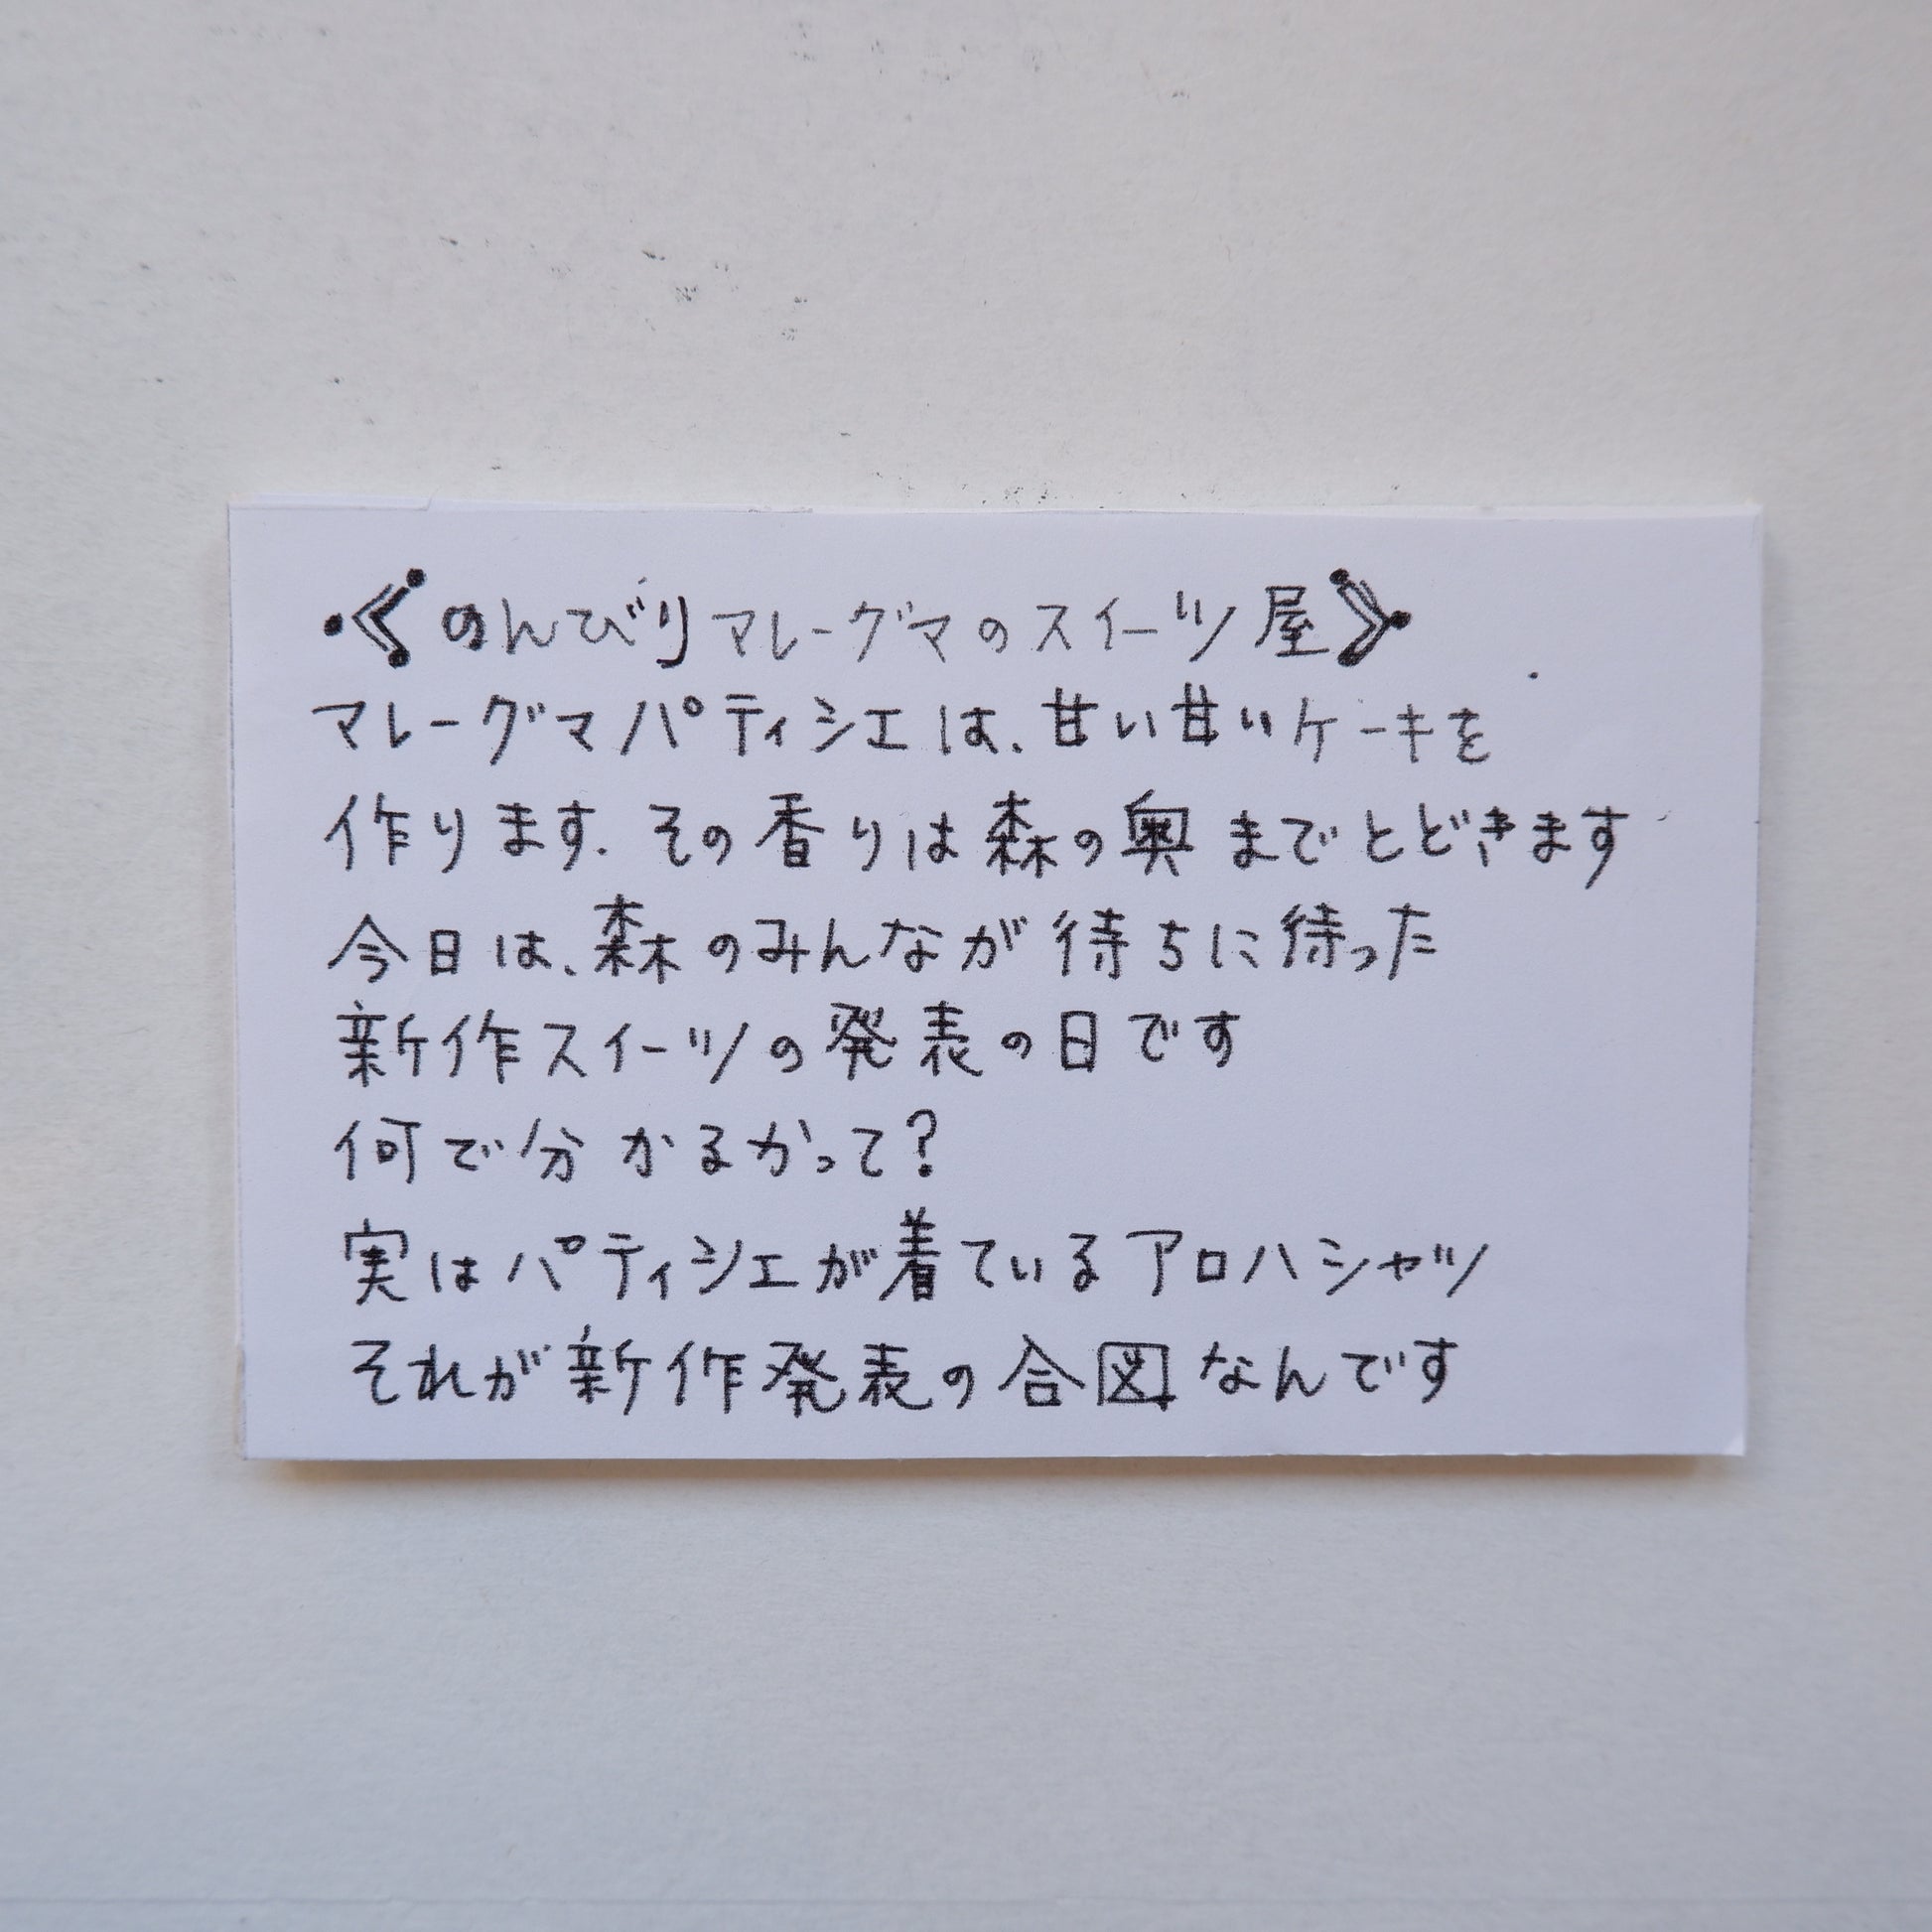 《のんびりマレーグマのスイーツ屋》
マレーグマパティシエは、甘い甘いケーキを
作ります.その香りは森の奥までとどきます
今日は、森のみんなが待ちに待った
新作スイーツの発表の日です
何で分かるかって?
実はパティシエが着ているアロハシャツ
それが新作発表の合図なんです